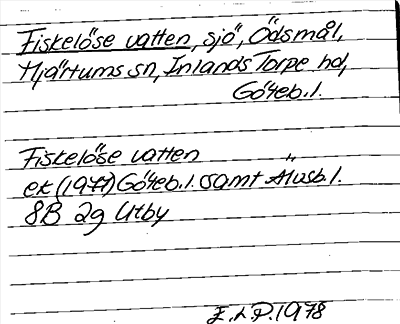 Fiskelöse vatten, sjö, Ödsmål,
Hjärtums sn, Inlands Torpe hd,
Göteb.l.
Fiskelöse vatten
ek (1977) Göteb.l. samt Älvsb.l.
8B 2g Utby
E.L.P. 1978